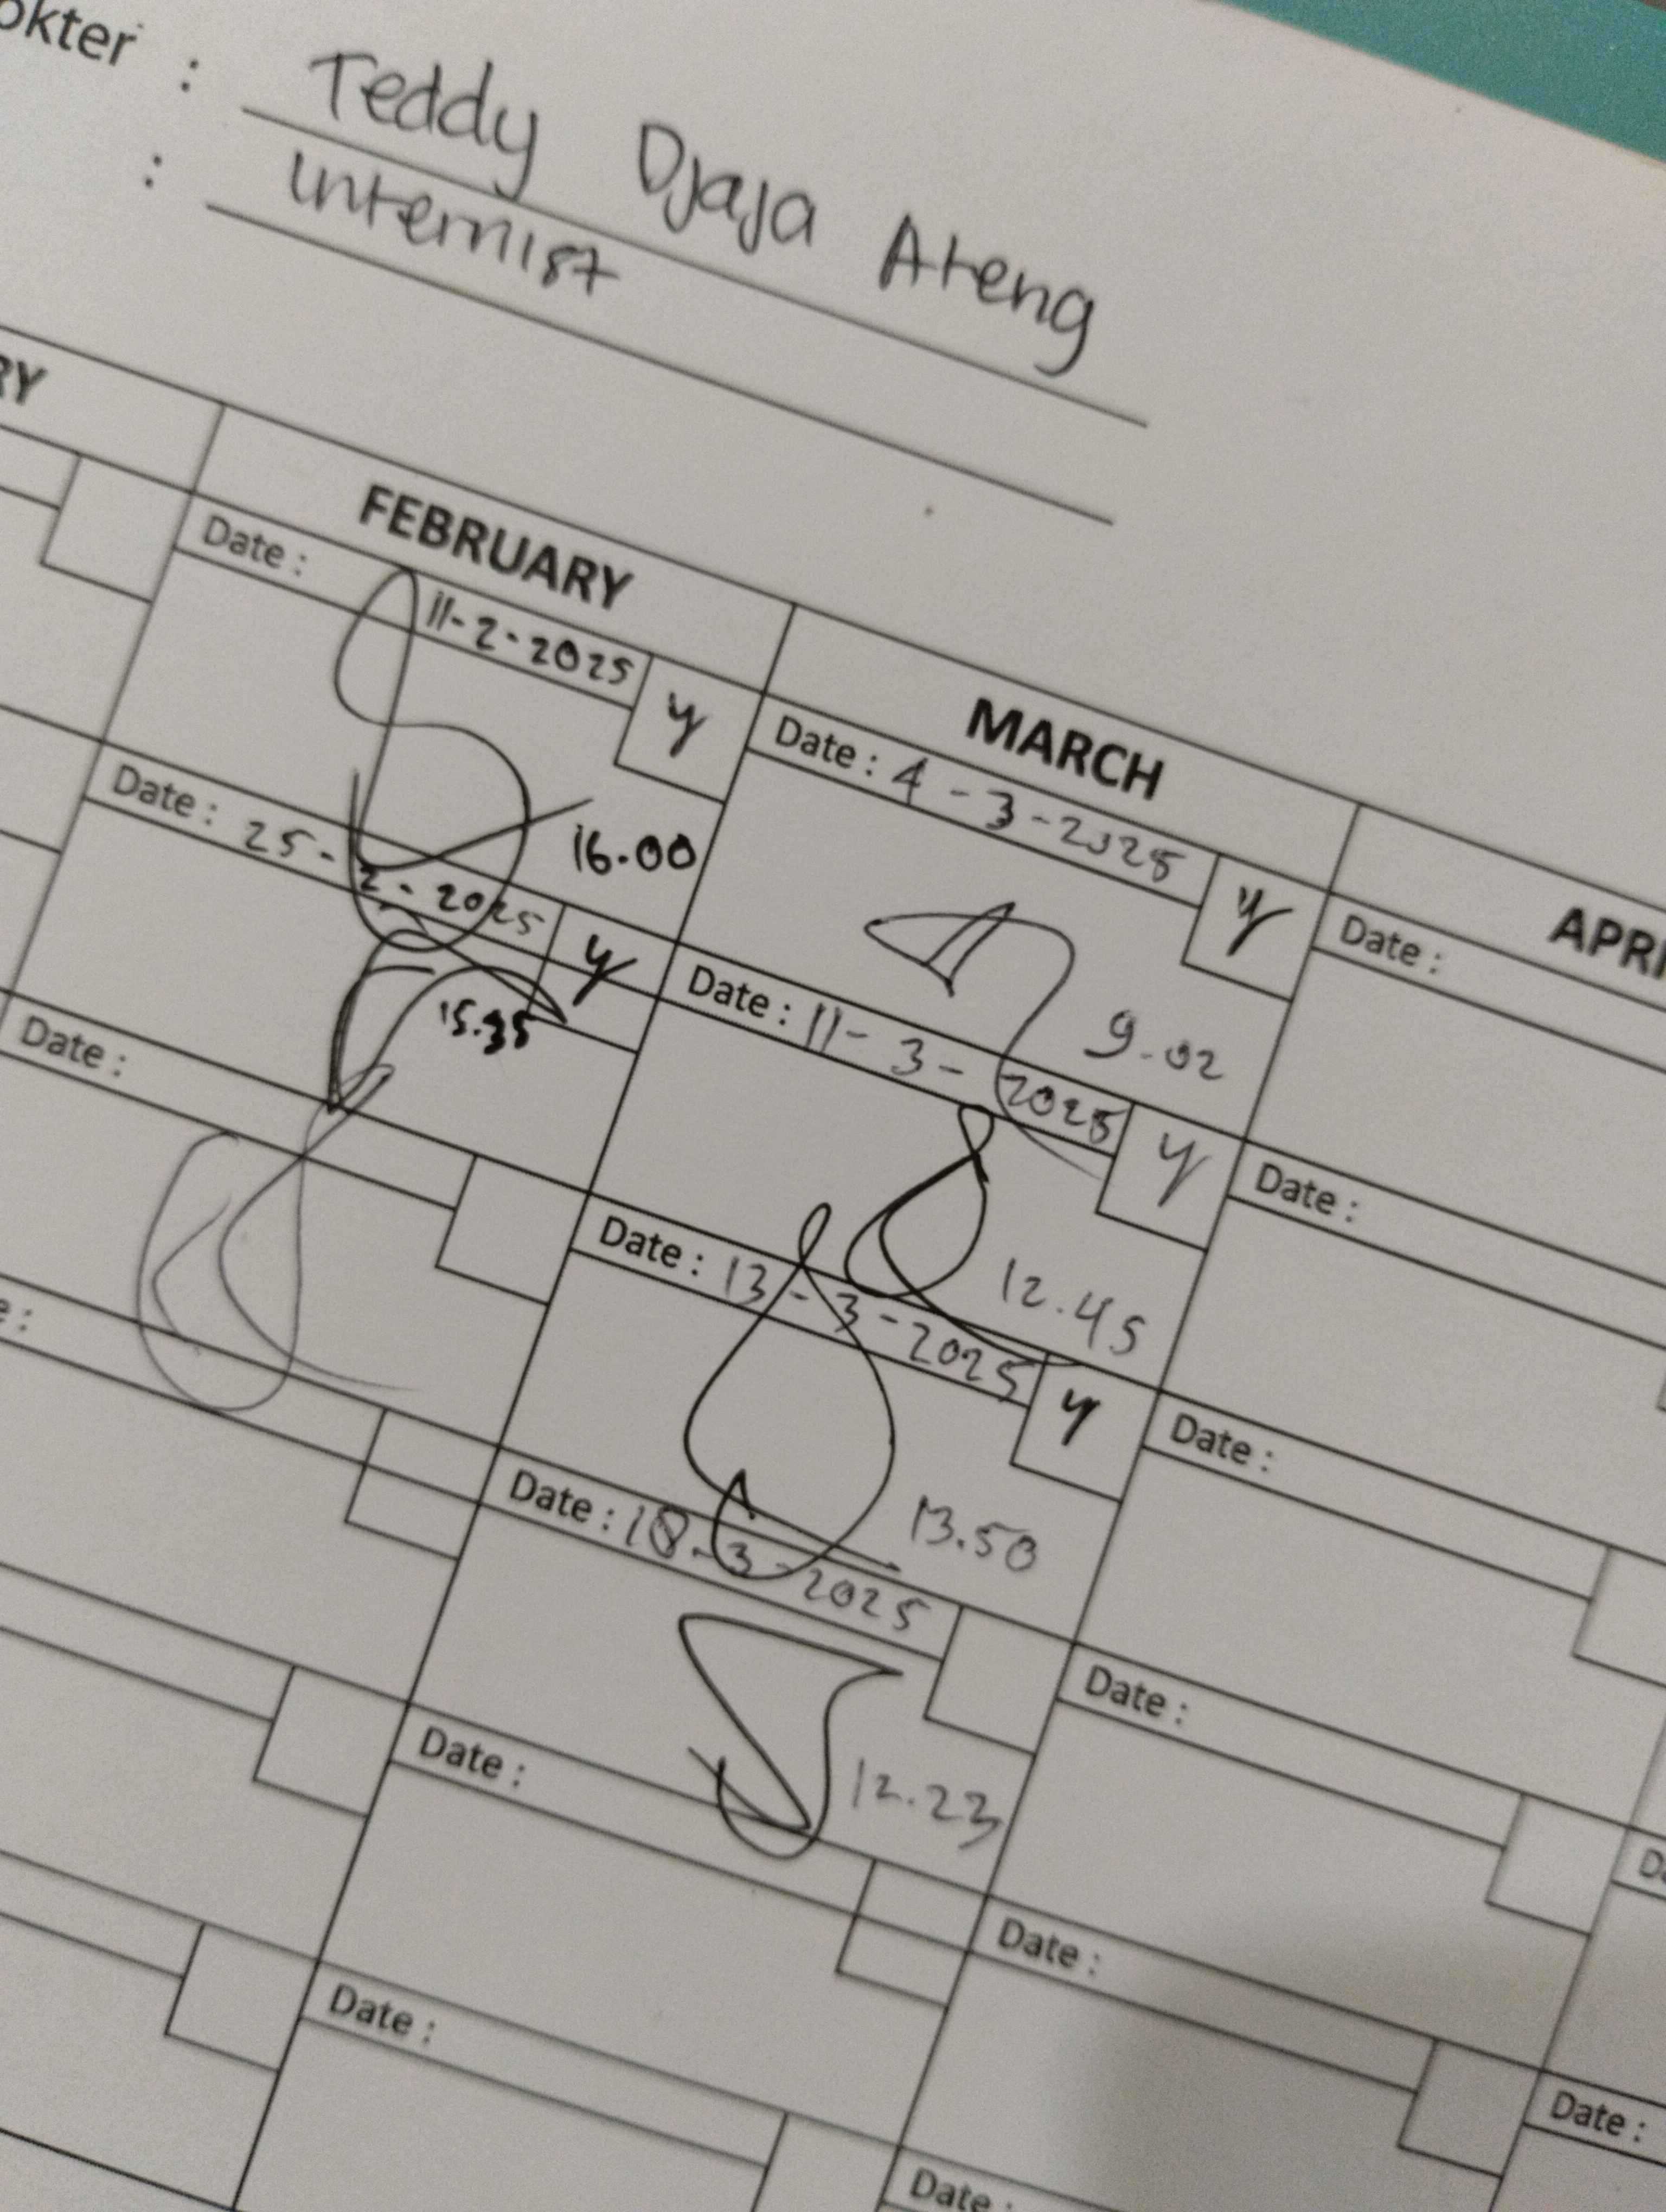 okter : Teddy Djaja Ateng
: Internist
RY
FEBRUARY
Date : 11-2-2025 y
16.00
Date : 25-2-2025 y
15.35
Date :
e :
MARCH
Date : 4-3-2025 y
9.02
Date : 11-3-2025 y
12.45
Date : 13-3-2025 y
13.50
Date : 18-3-2025
12.23
Date :
Date :
APRI
Date :
Date :
Date :
Date :
Date :
Date :
Da
Date :